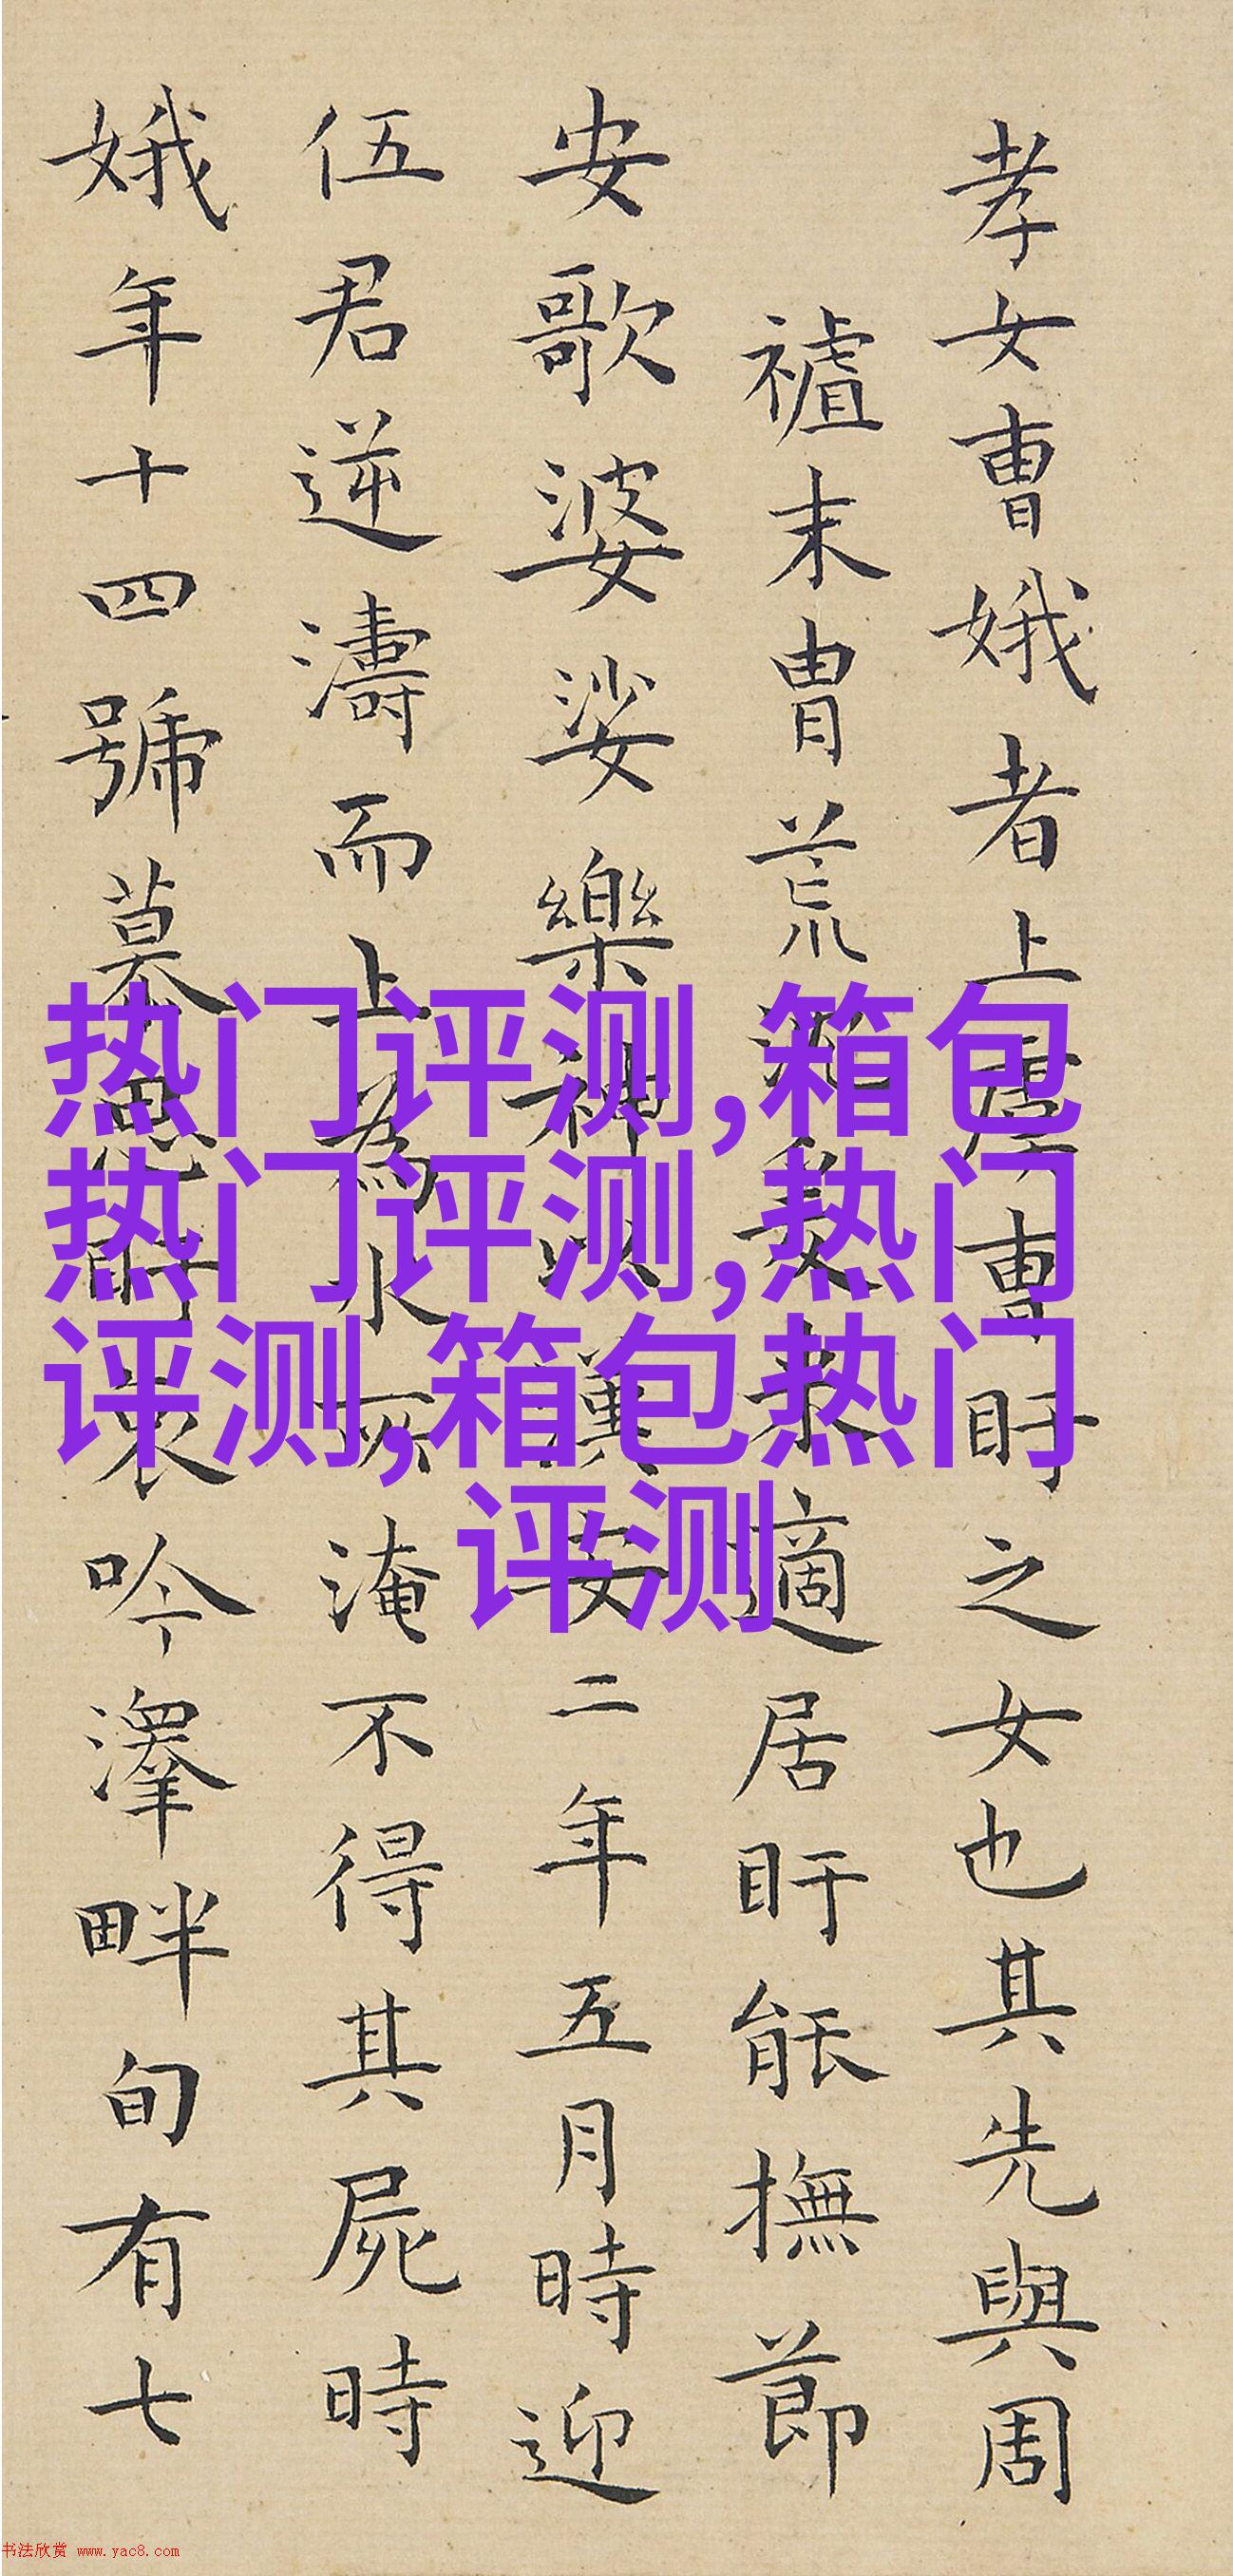 孝女曹娥者上虞曹盱之女也其先與周
祖末胄荒沉爰来適居盱能撫節
安歌婆娑樂神以漢安二年五月時迎
伍君逆濤而上為水所淹不得其屍時
娥年十四號慕思盱哀吟澤畔旬有七
热门评测,箱包
热门评测,热门
评测,箱包热门
评测
书法欣赏 www.yac8.com